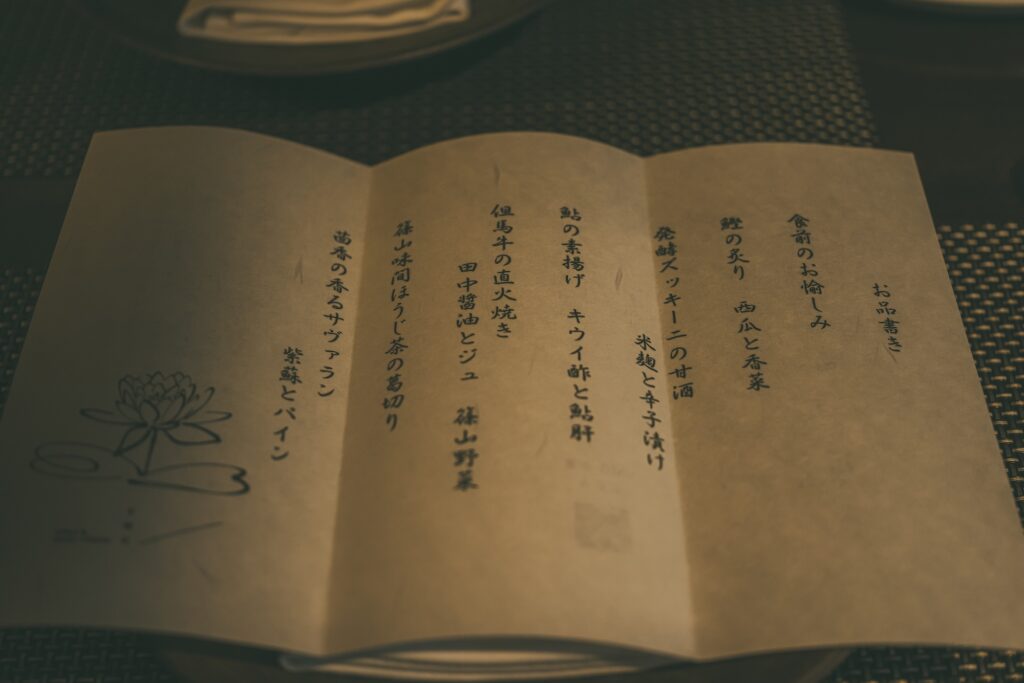 お品書き
食前のお愉しみ
鰹の炙り 西瓜と香菜
発酵ズッキーニの甘酒
米麹と辛子漬け
鮎の素揚げ キウイ酢と鮎肝
但馬牛の直火焼き
田中醤油とジュ 篠山野菜
篠山味間ほうじ茶の葛切り
茴香の香るサヴァラン
紫蘇とパイン